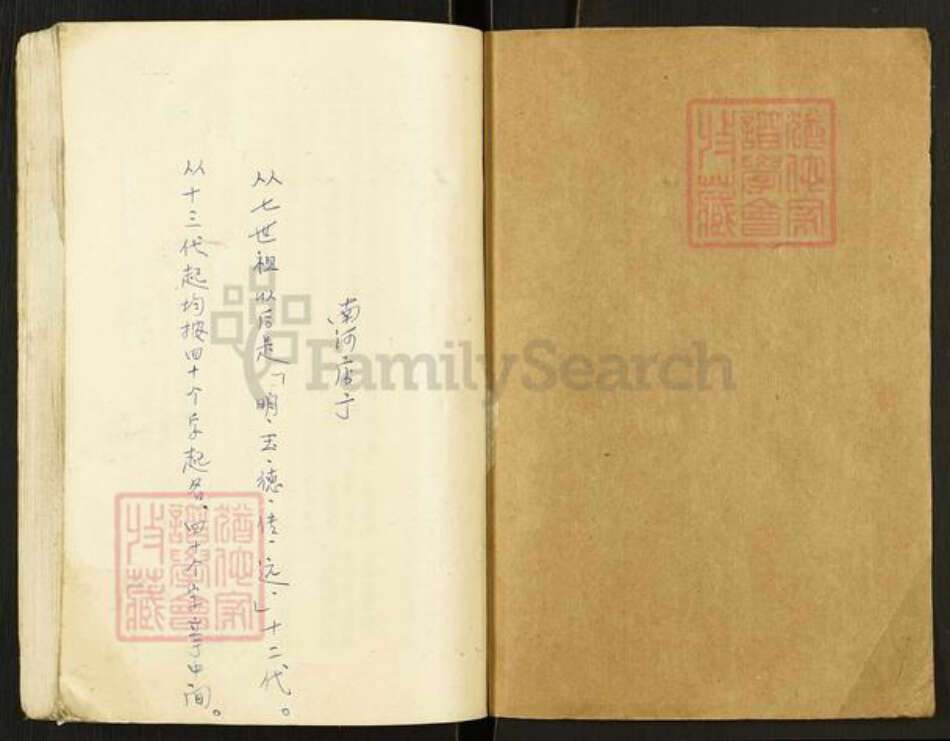 南河店子
从七世祖以后是「明、玉、德、传、远、」十二代。
从十三代起均按四十个字起名、四十个字在中间。
猶他家譜學會收藏
猶他家譜學會收藏
FamilySearch